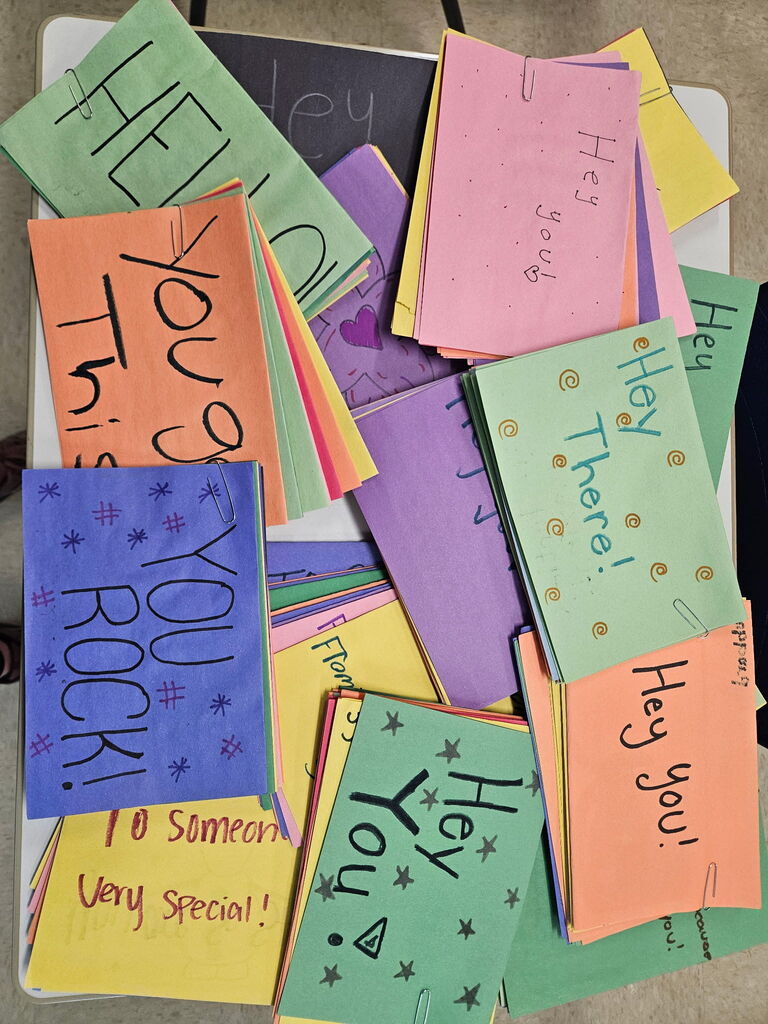 HELLO
Hey
Hey
you
You g
This
Hey
Hey
There!
YOU
ROCK!
From
Hey you!
To Someon
Very Special!
Hey
You!
you!